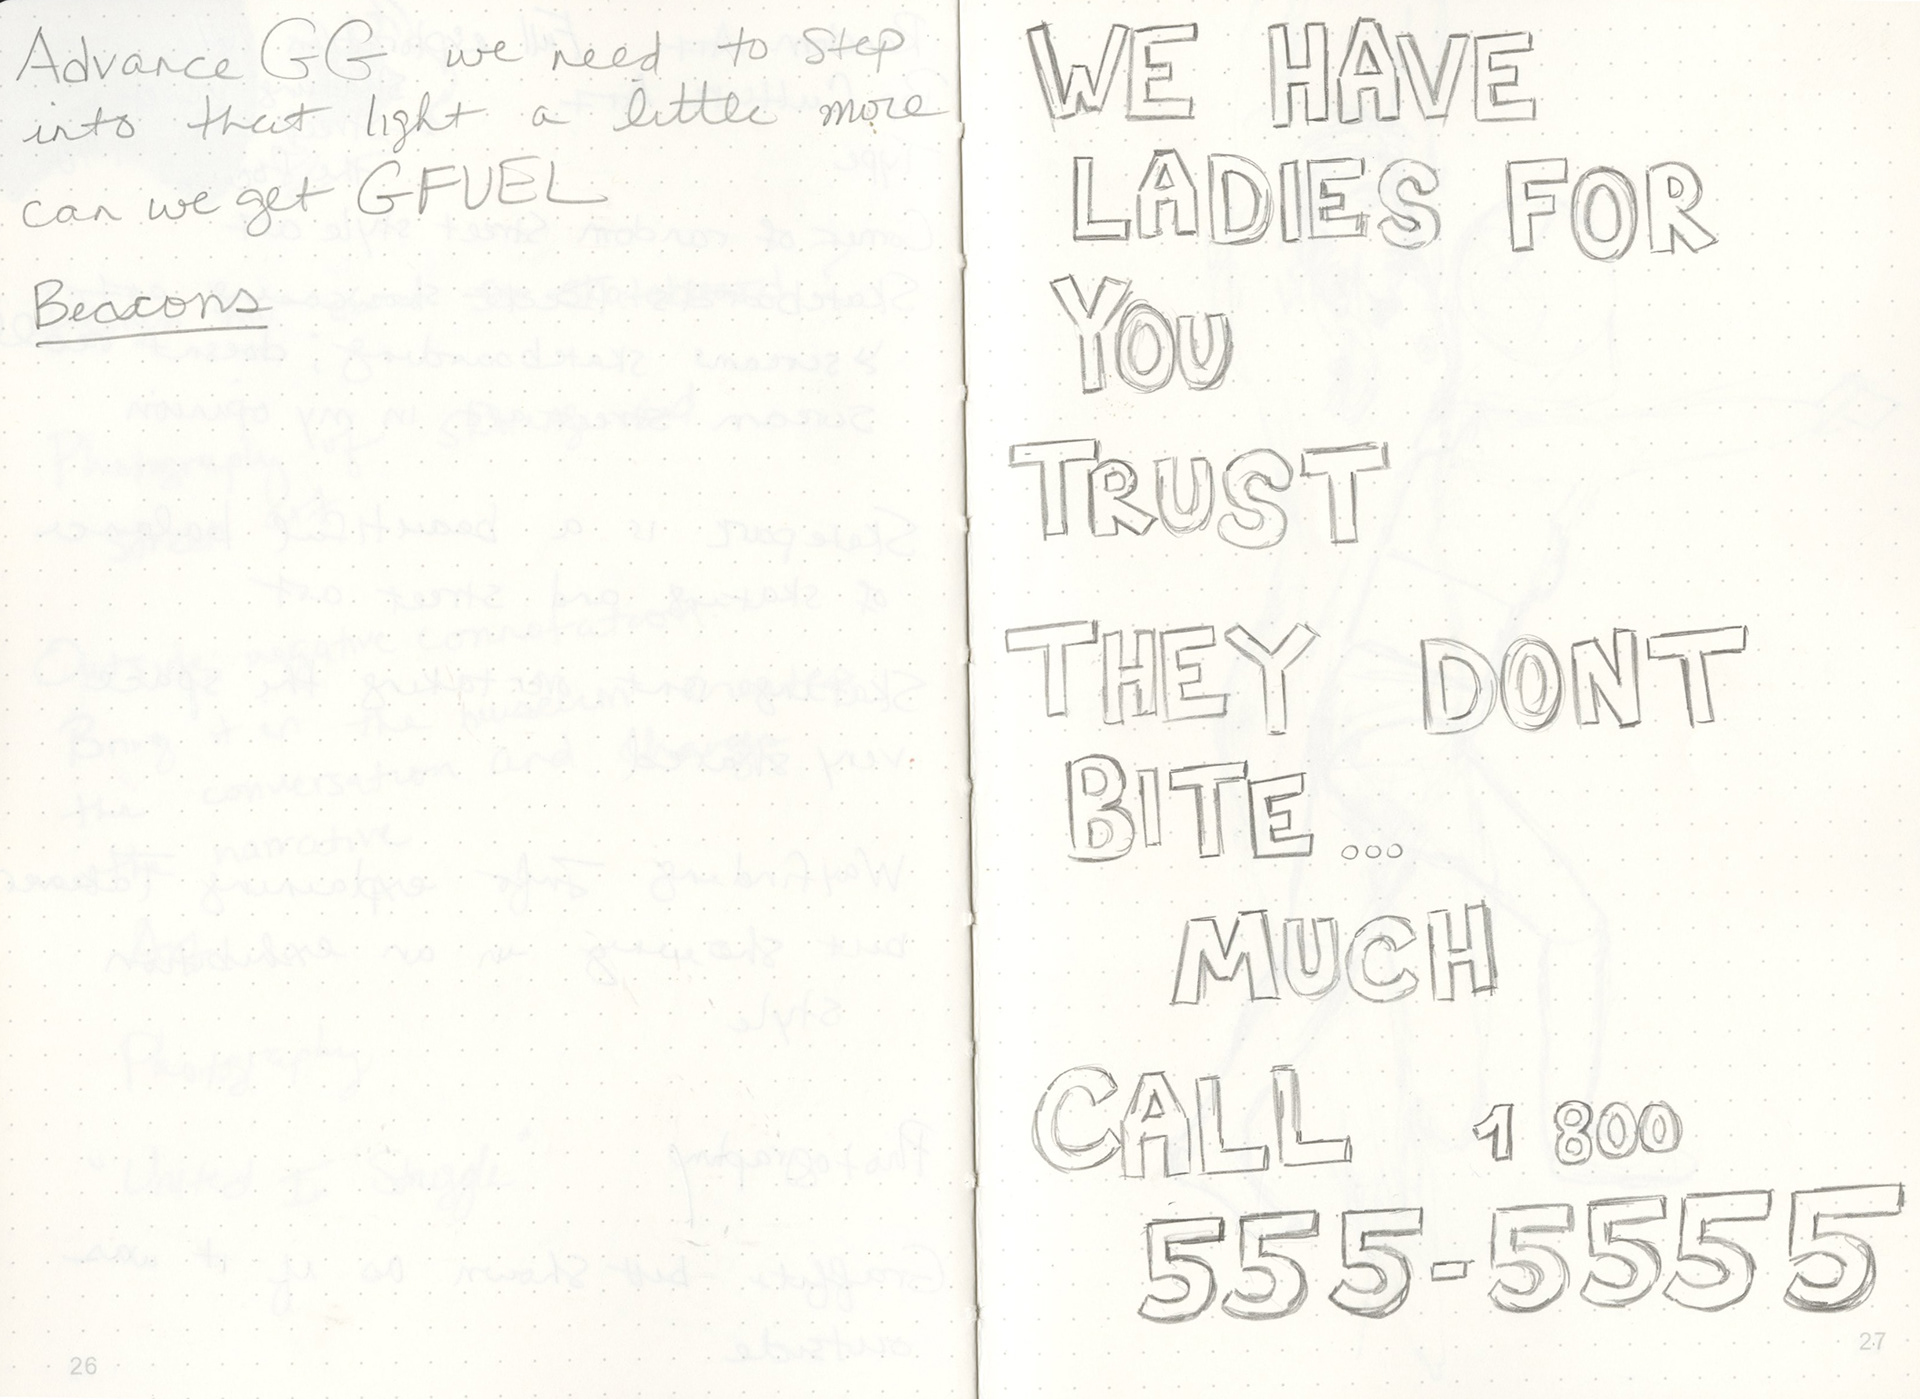 Advance GG we need to step
into that light a little more
can we get GFUEL
Beacons
26
WE HAVE
LADIES FOR
YOU
TRUST
THEY DONT
BITE...
MUCH
CALL 1 800
555-5555
27